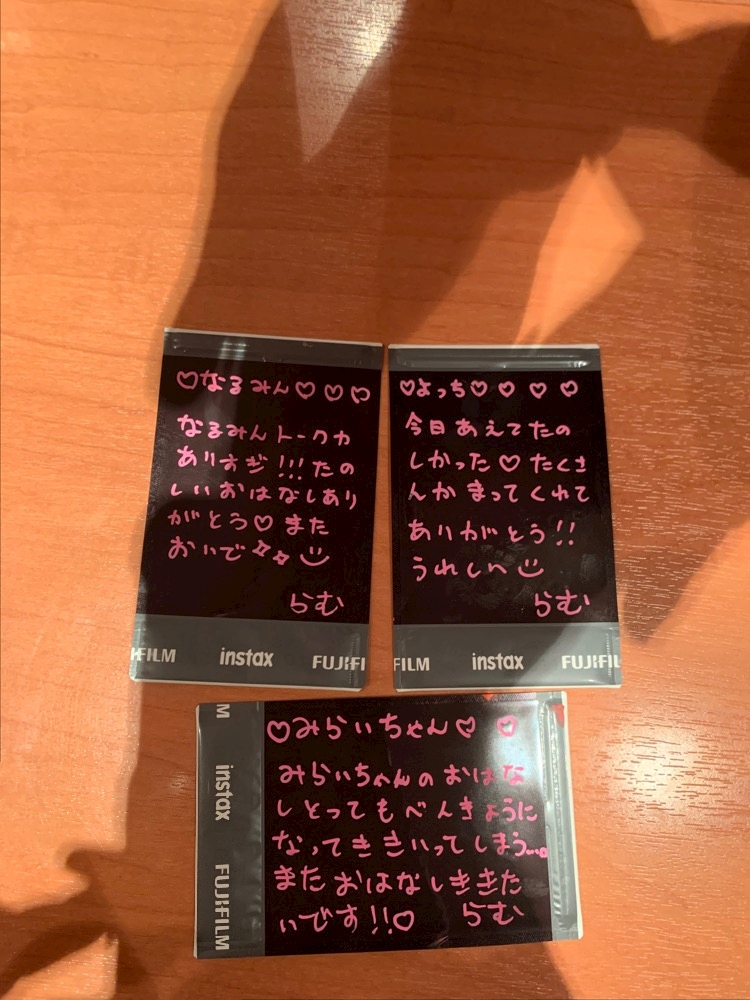 ♡なるみん♡♡♡
なるみんトークカ
ありすぎ!!!たの
しいおはなしあり
がとう♡また
おいで✧✧
らむ
FILM instax FUJIFI
♡よっち♡♡♡♡
今日あえてたの
しかった♡たくさ
んかまってくれて
ありがとう!!
うれしい
らむ
FILM instax FUJIFIL
♡みらいちゃん♡♡
みらいちゃんのおはな
しとってもべんきょうに
なってききいってしまう...。
またおはなしききた
いです!!♡ らむ
M instax FUJIFILM